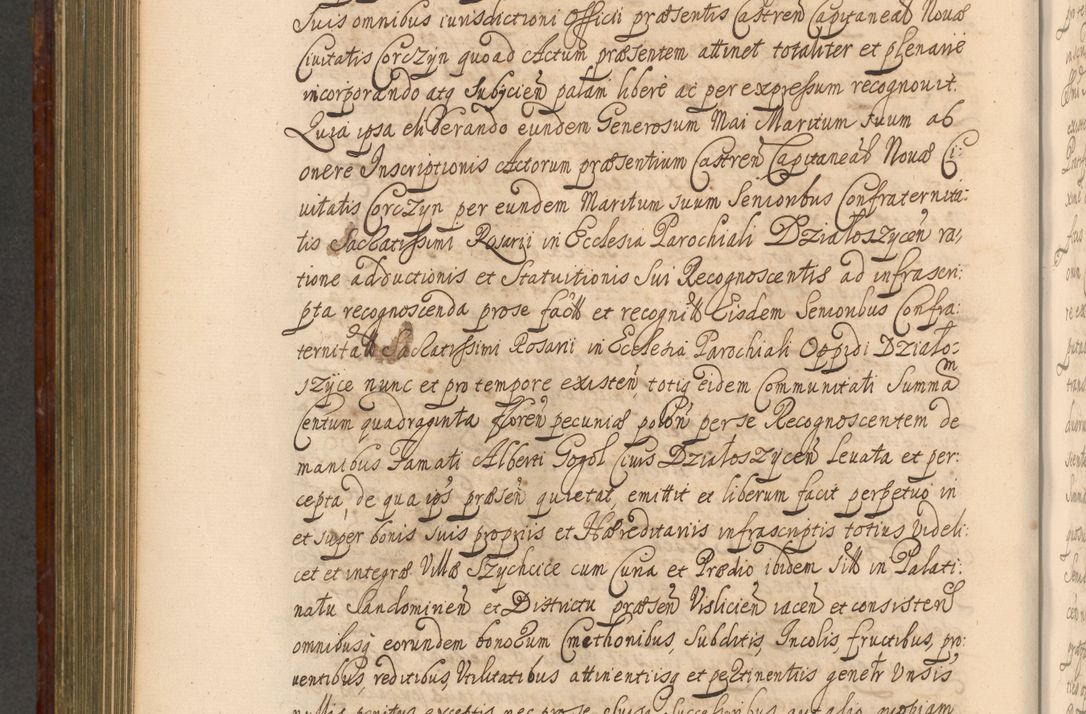 Suis omnibus iurisdictioni Officii præsentis Castren Capitaneal Novæ
Civitatis Corczyn quoad Actum præsentem attinet totaliter et plenarie
incorporando atq subycien palam libere ac per expressum recognovit.
Quia ipsa eliberando eundem Generosum Mai Maritum Suum ab
onere Inscriptionis Actorum præsentium Castren Capitaneal Novæ Ci:
vitatis Corczyn per eundem Maritum suum Senioribus Confraternita:
tis Sacratissimi Rosarii in Ecclesia Parochiali Działoszycen ra,
tione adductionis et Statuitionis Sui Recognoscentis ad infrascri:
pta recognoscenda prose fact et recognit Eisdem Senioribus Confra:
ternitat Sacratissimi Rosarii in Ecclesia Parochiali Oppidi Działo:
szyce nunc et pro tempore existen, totis eidem Communitati Summam
Centum quadraginta floren pecuniæ polon per se Recognoscentem de
manibus Famati Alberti Gogol Civis Działoszycen levata et per:
cepta, de qua ips præsen quietat, emittit et liberum facit perpetuo in
et super bonis suis propriis et Hæreditariis infrascriptis totius videli:
cet et integræ Villæ Szychcice cum Curia et Prædio ibidem Sitt in Palati:
natu Sandomirien et Districtu præsen Vislicien iacen et consisten
omnibusq eorundem bonorum Cmethonibus, Subditis, Incolis, fructibus, pro:
ventibus, reditibus, Utilitatibus attinentiisq et pertinentiis generlr Unsis
nullis penitus exceptis nec pro se eiusq Successoribus